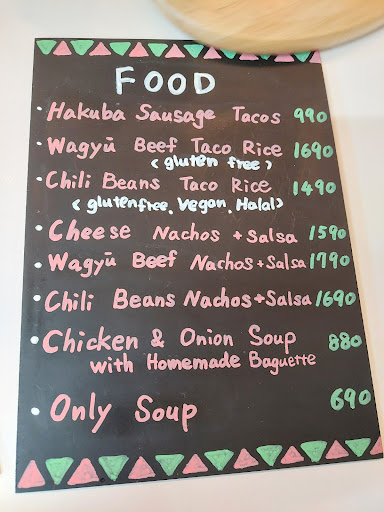 FOOD
• Hakuba Sausage Tacos 990
• Wagyū Beef Taco Rice 1690
(gluten free)
• Chili Beans Taco Rice 1490
(glutenfree, Vegan, Halal)
• Cheese Nachos + Salsa 1590
• Wagyū Beef Nachos + Salsa 1790
• Chili Beans Nachos + Salsa 1690
• Chicken & Onion Soup 880
with Homemade Baguette
• Only Soup 690